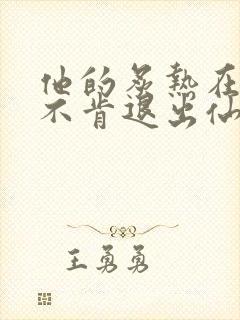 他的炙热在
不肯退出仙
王勇勇